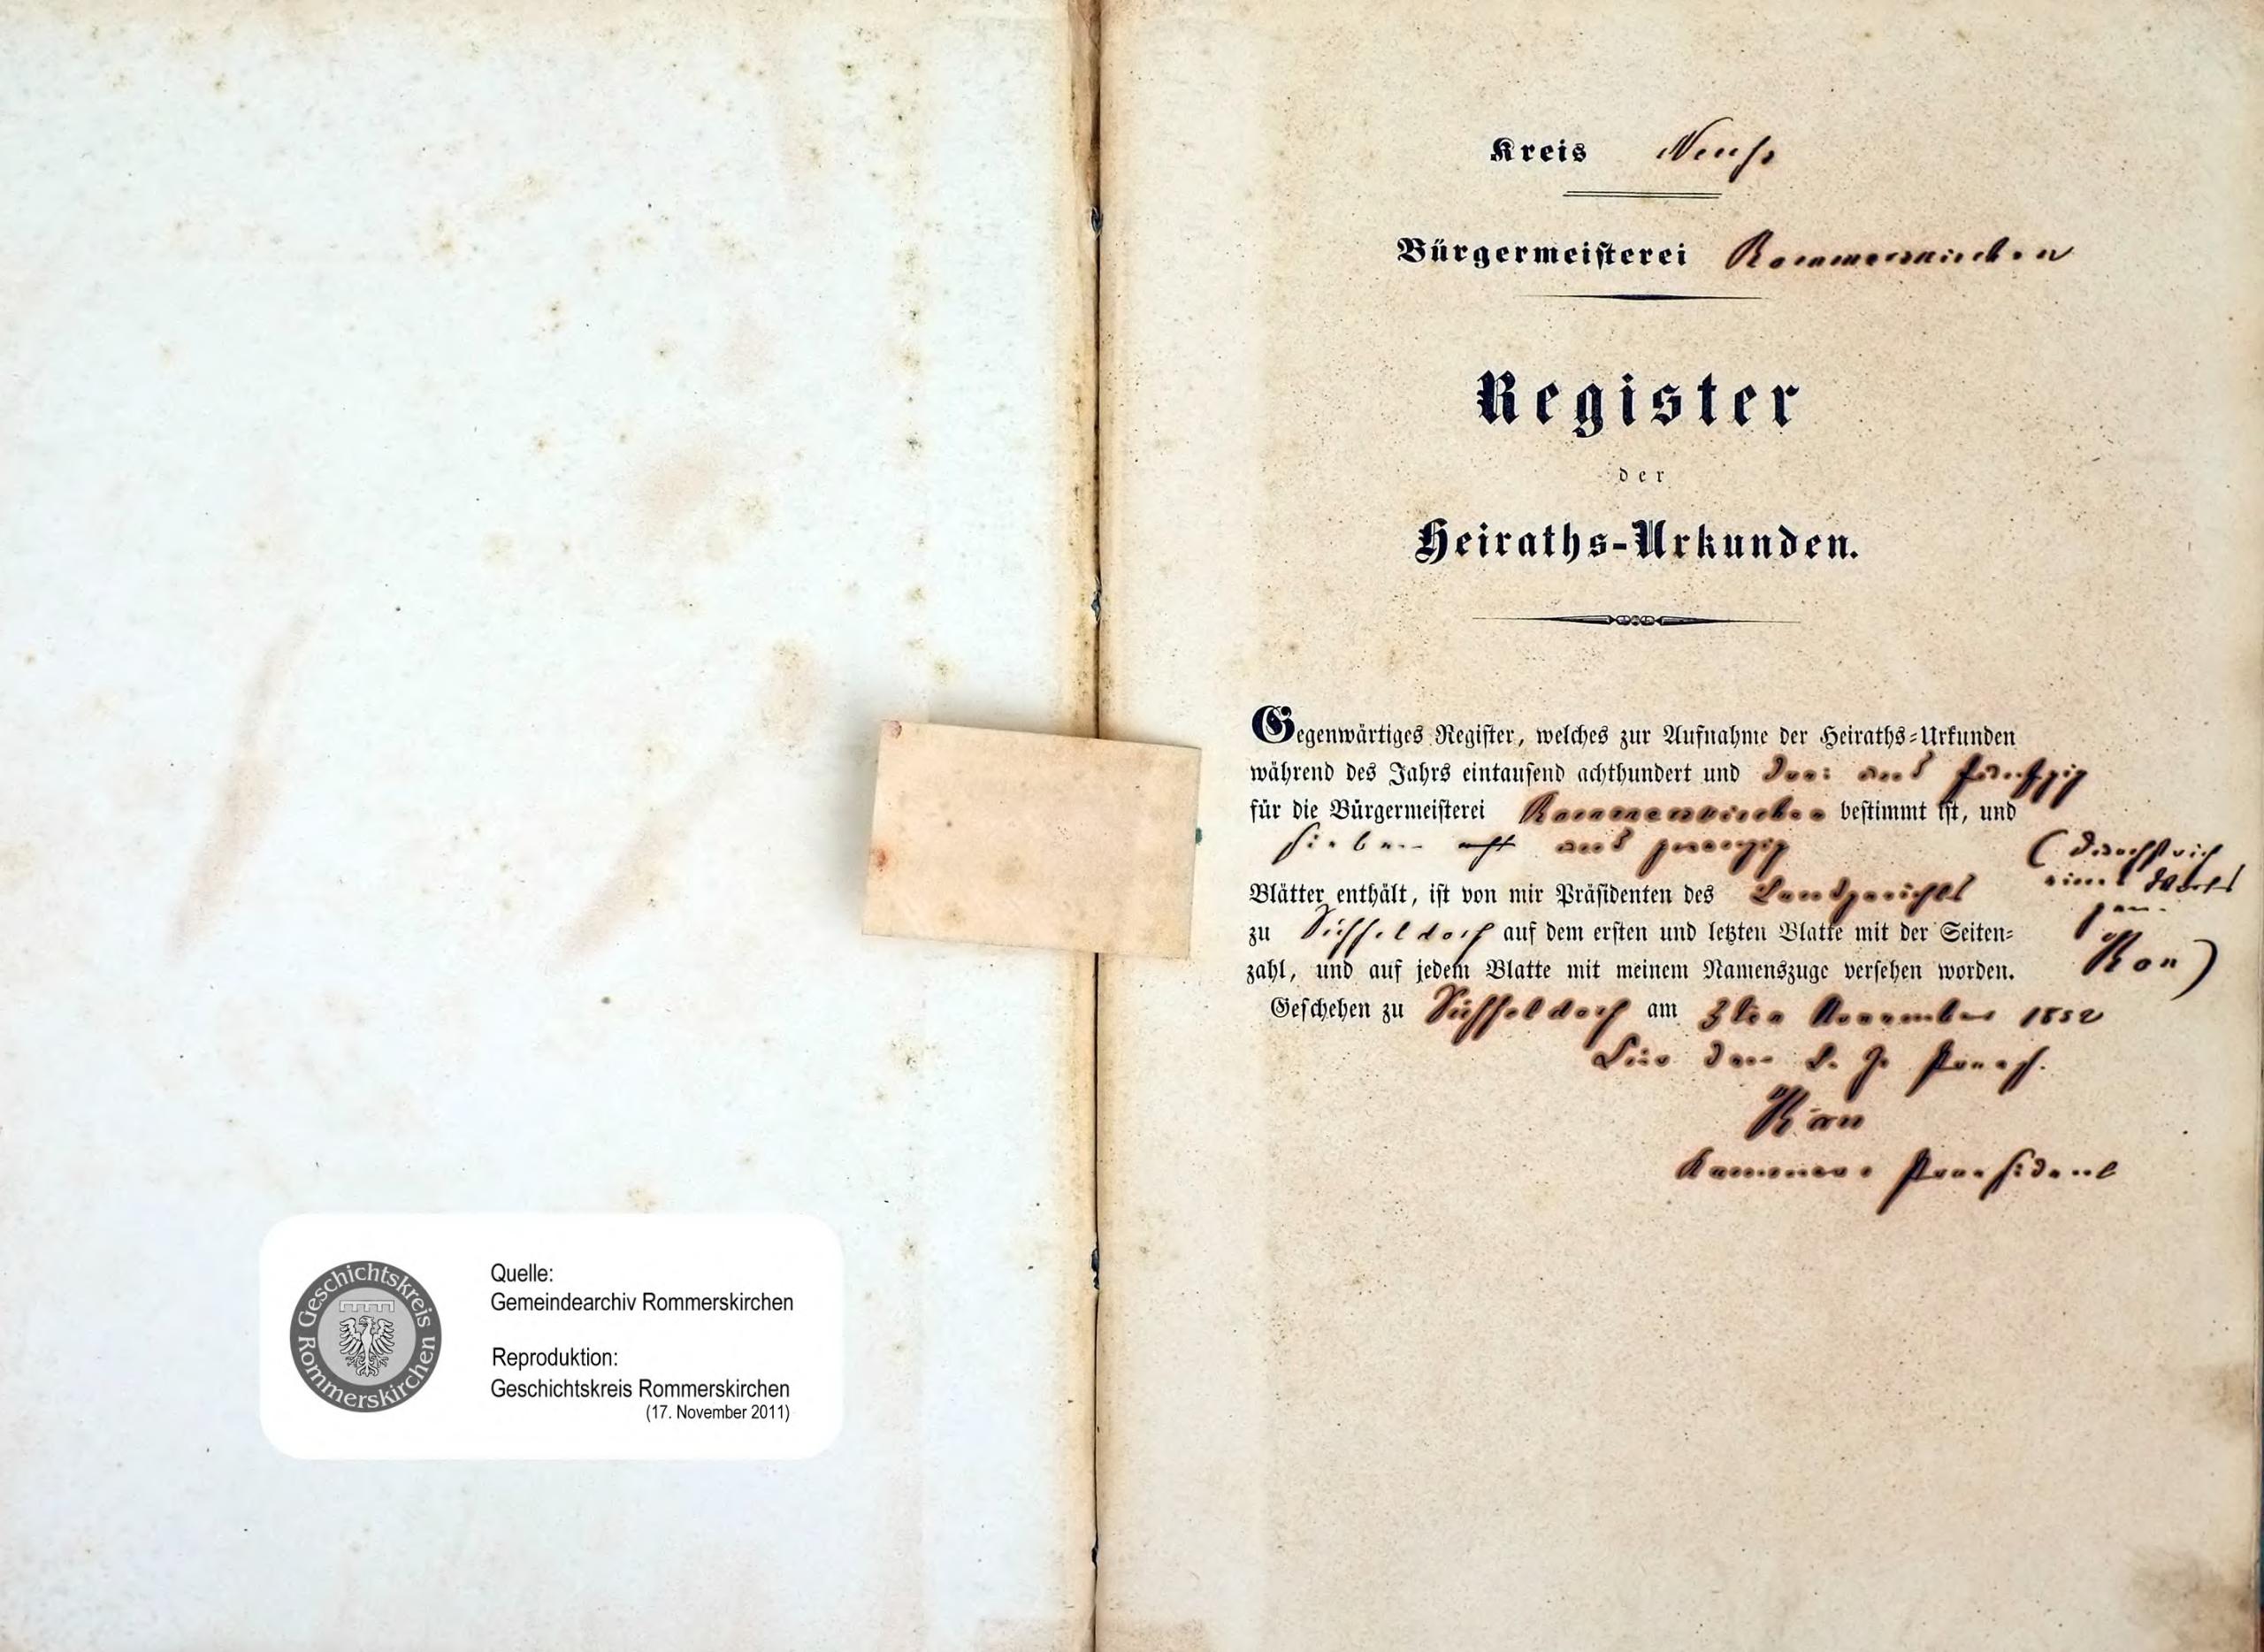 Geschichtskreis Rommerskirchen
Quelle:
Gemeindearchiv Rommerskirchen
Reproduktion:
Geschichtskreis Rommerskirchen
(17. November 2011)
Kreis Neuss
Bürgermeisterei Rommerskirchen
Register
der
Heiraths-Urkunden.
Gegenwärtiges Register, welches zur Aufnahme der Heiraths-Urkunden
während des Jahrs eintausend achthundert und drei und fünfzig
für die Bürgermeisterei Rommerskirchen bestimmt ist, und
sieben und zwanzig
Blätter enthält, ist von mir Präsidenten des Landgerichts
zu Düsseldorf auf dem ersten und letzten Blatte mit der Seiten-
zahl, und auf jedem Blatte mit meinem Namenszuge versehen worden.
(Durchstrich
eines Worts
gen.
Geschehen zu Düsseldorf am 3ten November 1852
Für den L. G. Präs.
Kammer Praesident